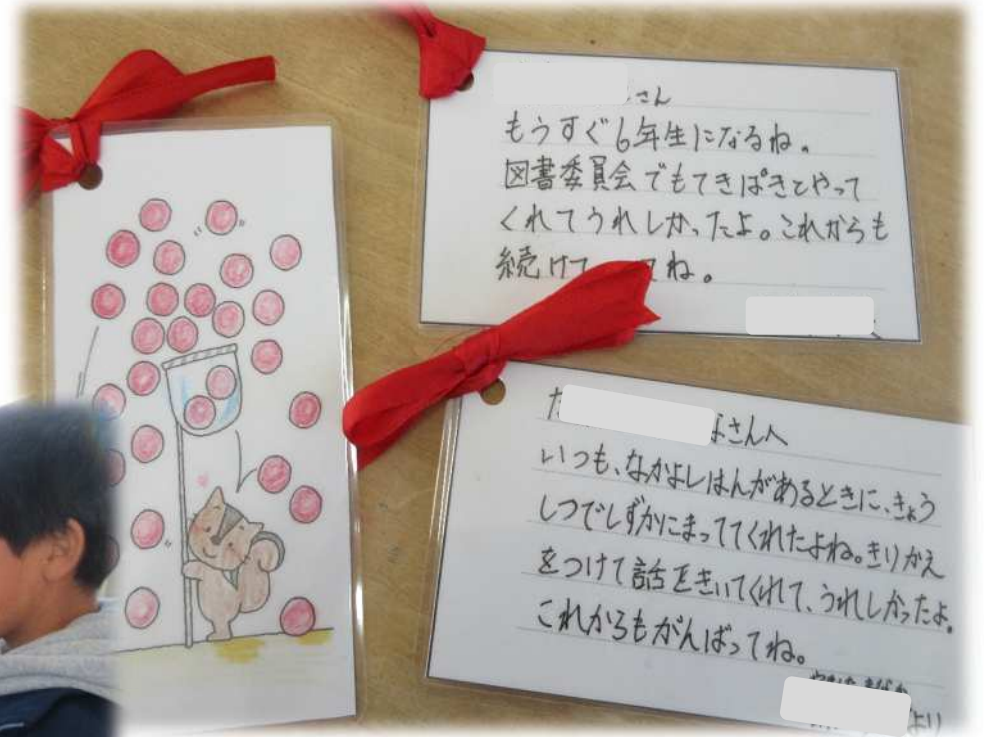 さん
もうすぐ6年生になるね。
図書委員会でもてきぱきとやって
くれてうれしかったよ。これからも
続けて てね。
た さんへ
いつも、なかよしはんがあるときに、きょう
しつでしずかにまっててくれたよね。きりかえ
をつけて話をきいてくれて、うれしかったよ。
これからもがんばってね。
より